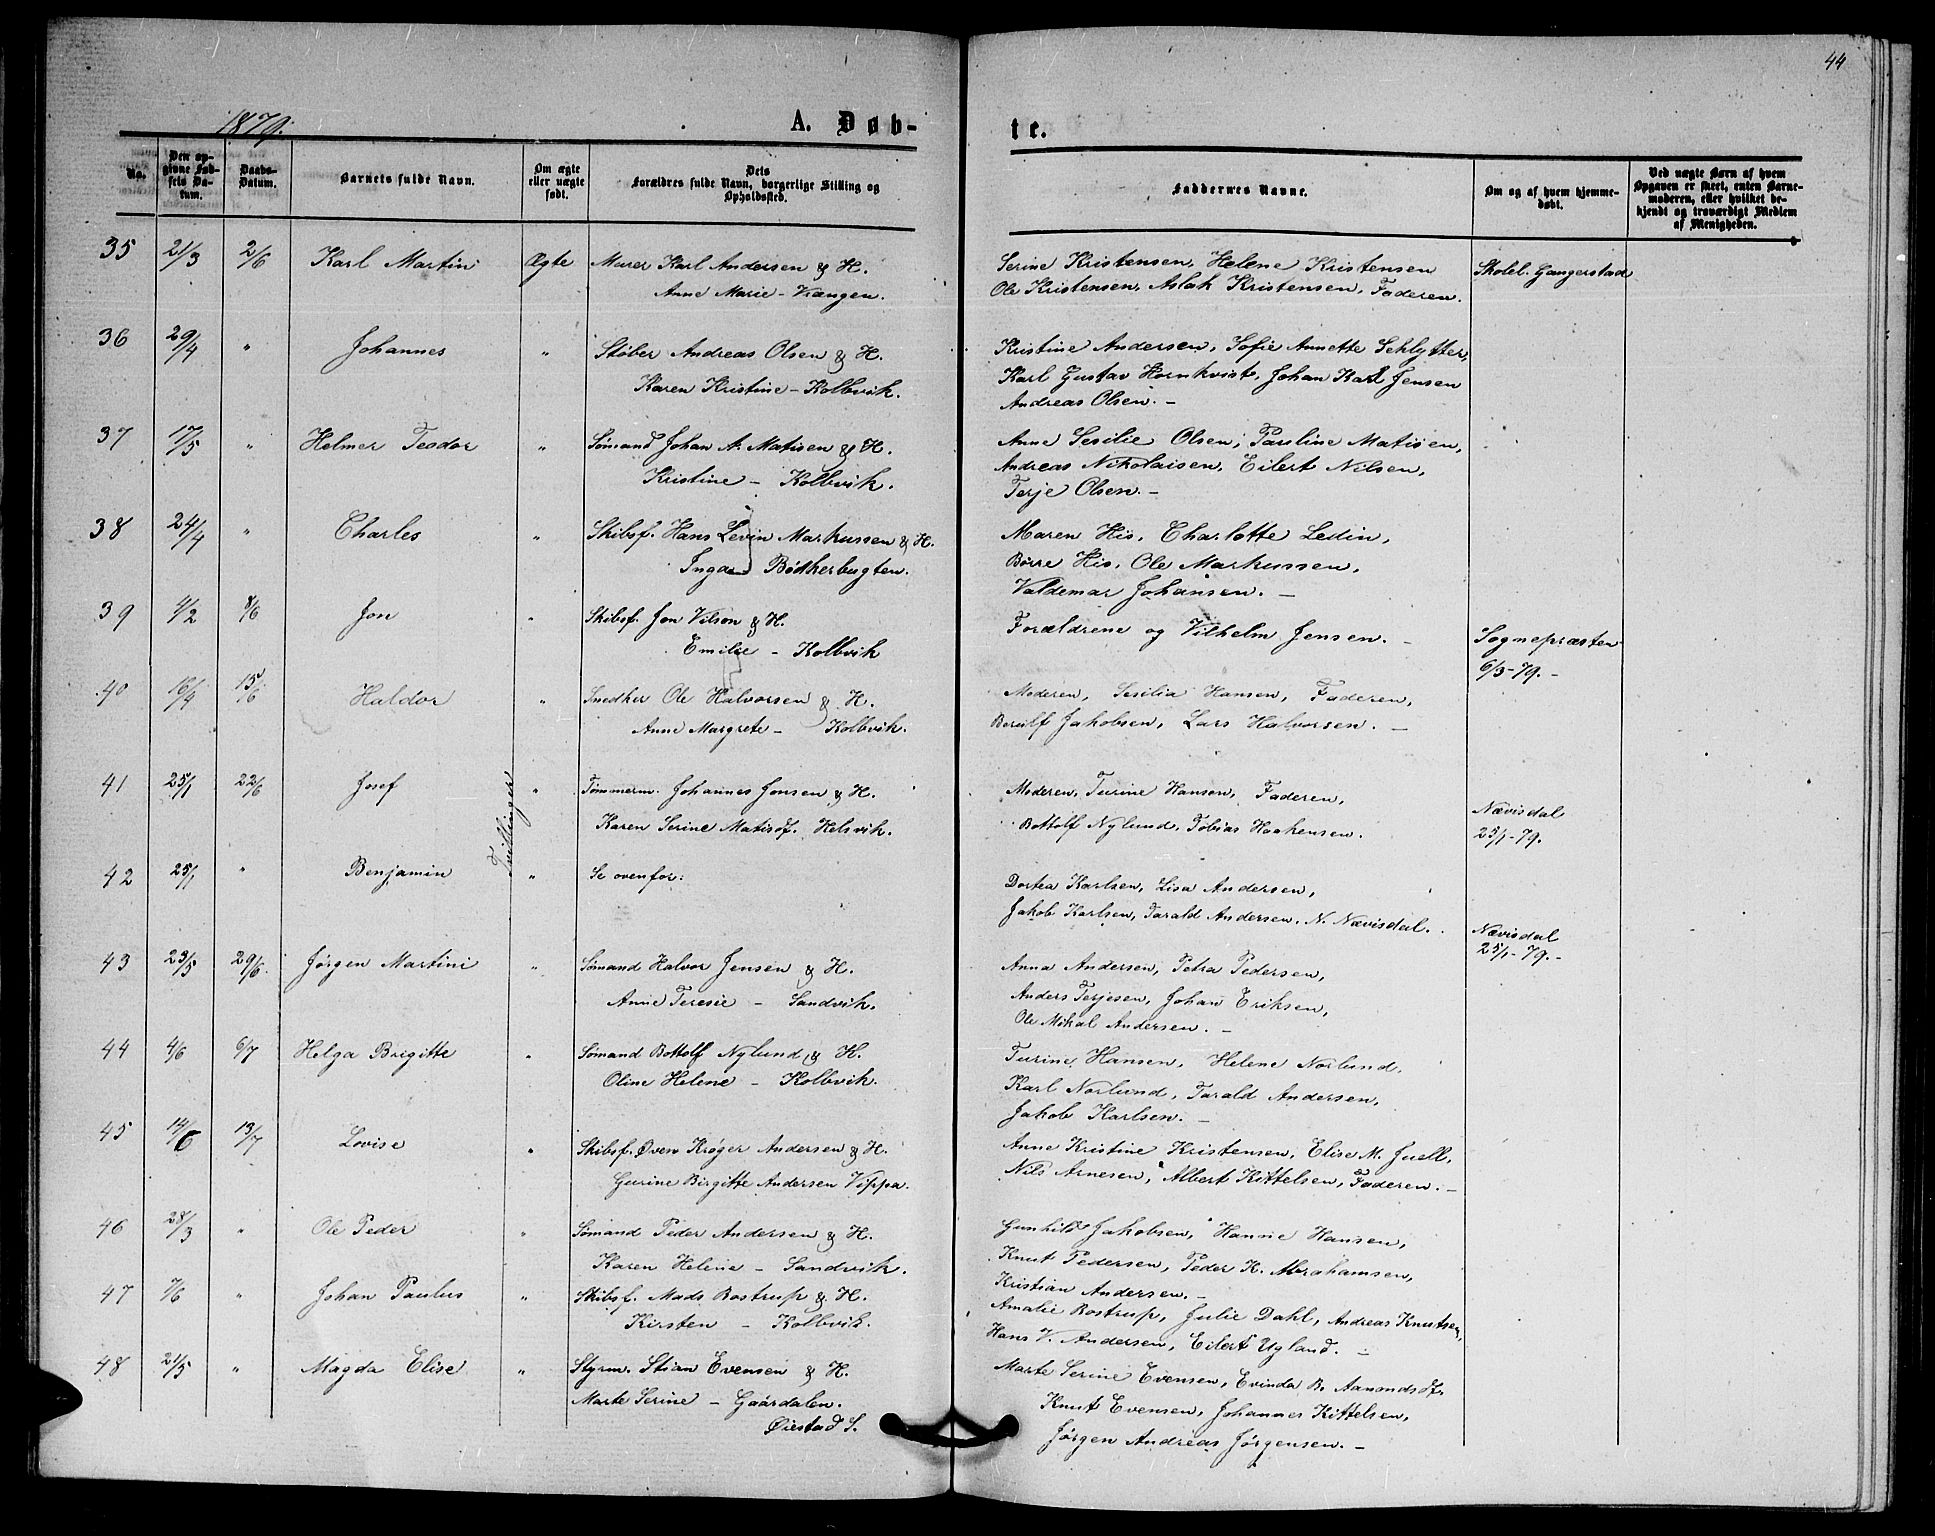 44
1879.
A. Døb-
te.
No.
Den op-
givne Fød-
sels Da-
tum.
Daabs-
Datum.
Barnets fulde Navn.
Om ægte
eller uægte
født.
Dets
Forældres fulde Navn, borgerlige Stilling og
Opholdssted.
Faddernes Navne.
Om og af hvem hjemme-
døbt.
Ved uægte Børn af hvem
Opgaven er skeet, enten Barne-
moderen, eller hvilket be-
kjendt og troværdigt Medlem
af Menigheden.
35 21/3 2/6 Karl Martin Ægte Murer Karl Andersen & H.
Anne Marie - Vrængen.
Serine Kristensen, Helene Kristensen
Ole Kristensen, Aslak Kristensen, Faderen.
Skolel. Gangerstad
36 29/4 " Johannes " Støber Andreas Olsen & H.
Karen Kristine - Kolbvik.
Kristine Andersen, Sofie Annette Schlytter,
Karl Gustav Hornkvist, Johan Karl Jensen
Andreas Olsen. -
37 17/5 " Helmer Teodor " Sømand Johan A. Matisen & H.
Kristine - Kolbvik.
Anne Sesilie Olsen, Pauline Matisen,
Andreas Nikolaisen, Eilert Nilsen,
Terje Olsen. -
38 24/4 " Charles " Skibsf. Hans Levin Markussen & H.
Inga Bødkerbugten.
Maren His, Charlotte Ledin,
Børre His, Ole Markussen,
Valdemar Johansen. -
39 4/2 8/6 Jon " Skibsf. Jon Vilson & H.
Emilie - Kolbvik
Forældrene og Vilhelm Jensen. -
Sognepræsten
6/3-79. -
40 16/4 15/6 Haldor " Snedker Ole Halvorsen & H.
Anne Margrete - Kolbvik.
Moderen, Sesilia Hansen, Faderen,
Berulf Jakobsen, Lars Halvorsen. -
41 25/1 22/6 Josef Tvillinger " Tømmerm. Johannes Jonsen & H.
Karen Serine Matisdf. Helsvik.
Moderen, Turine Hansen, Faderen,
Bottolf Nylund, Tobias Haakensen.
Nævisdal
25/1-79.
42 25/1 " Benjamin " Se ovenfor:
Dortea Karlsen, Lisa Andersen,
Jakob Karlsen, Tarald Andersen, N. Nævisdal.
Nævisdal
25/1-79. -
43 23/5 29/6 Jørgen Martini " Sømand Halvor Jensen & H.
Anne Teresie - Sandvik.
Anna Andersen, Petra Pedersen,
Anders Terjesen, Johan Eriksen,
Ole Mikal Andersen. -
44 4/6 6/7 Helga Brigitte " Sømand Bottolf Nylund, & H.
Oline Helene - Kolbvik.
Turine Hansen, Helene Norlund,
Karl Norlund, Tarald Andersen,
Jakob Karlsen. -
45 14/6 13/7 Lovise " Skibsf. Øven Krøger Andersen & H.
Gurine Birgitte Andersen Vippa.
Anne Kristine Kristensen, Elise M. Juell,
Nils Arnesen, Albert Kittelsen, Faderen. -
46 28/3 " Ole Peder " Sømand Peder Andersen & H.
Karen Helene - Sandvik.
Gunhild Jakobsen, Hanne Hansen,
Knut Pedersen, Peder K. Abrahamsen,
Kristian Andersen. -
47 7/6 " Johan Paulus " Skibsf. Mads Bostrup & H.
Kirsten - Kolbvik.
Amalie Bostrup, Julie Dahl, Andreas Knutsen,
Hans V. Andersen, Eilert Ugland. -
48 21/5 " Magda Elise " Styrm. Stian Evensen & H.
Marte Serine - Gaardalen.
Øiestad S.
Marte Serine Evensen, Evinda B. Aamondsdf.
Knut Evensen, Johannes Kittelsen,
Jørgen Andreas Jørgensen. -